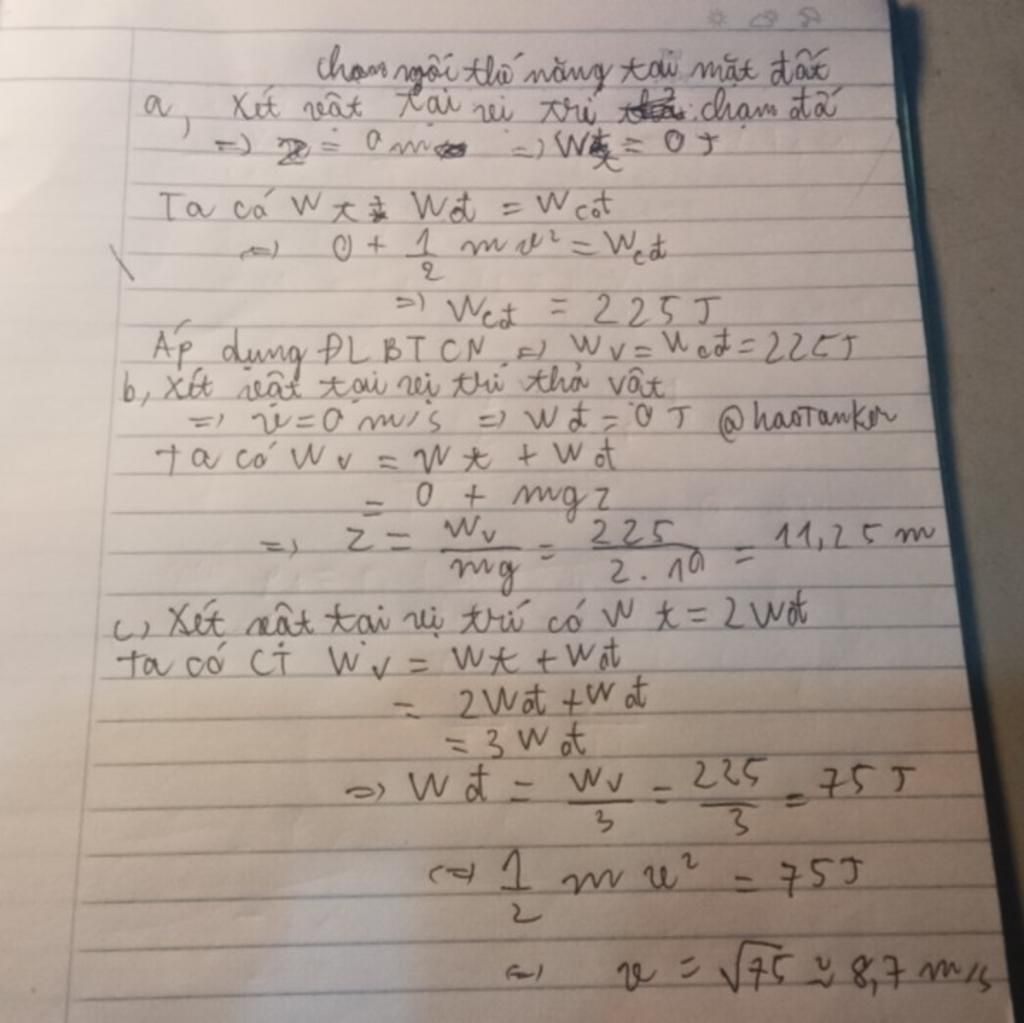 chọn ngồi thế năng tại mặt đất
a, Xét vật tại vị trí chạm đấ
=> z = 0 m => Wt = 0 J
Ta có Wt + Wđ = Wcđ
<=> 0 + 1/2 mv² = Wcđ
=> Wcđ = 225 J
Áp dụng ĐLBTCN => Wv = Wcđ = 225J
b, Xét vật tại vị trí thả vật
=> v = 0 m/s => Wđ = 0 J @haoTanker
Ta có Wv = Wt + Wđ
= 0 + mgz
=> z = Wv/mg = 225/2.10 = 11,25 m
c, Xét vật tại vị trí có Wt = 2Wđ
Ta có CT Wv = Wt + Wđ
= 2Wđ + Wđ
= 3Wđ
=> Wđ = Wv/3 = 225/3 = 75 J
<=> 1/2 mv² = 75J
<=> v = √75 ≈ 8,7 m/s